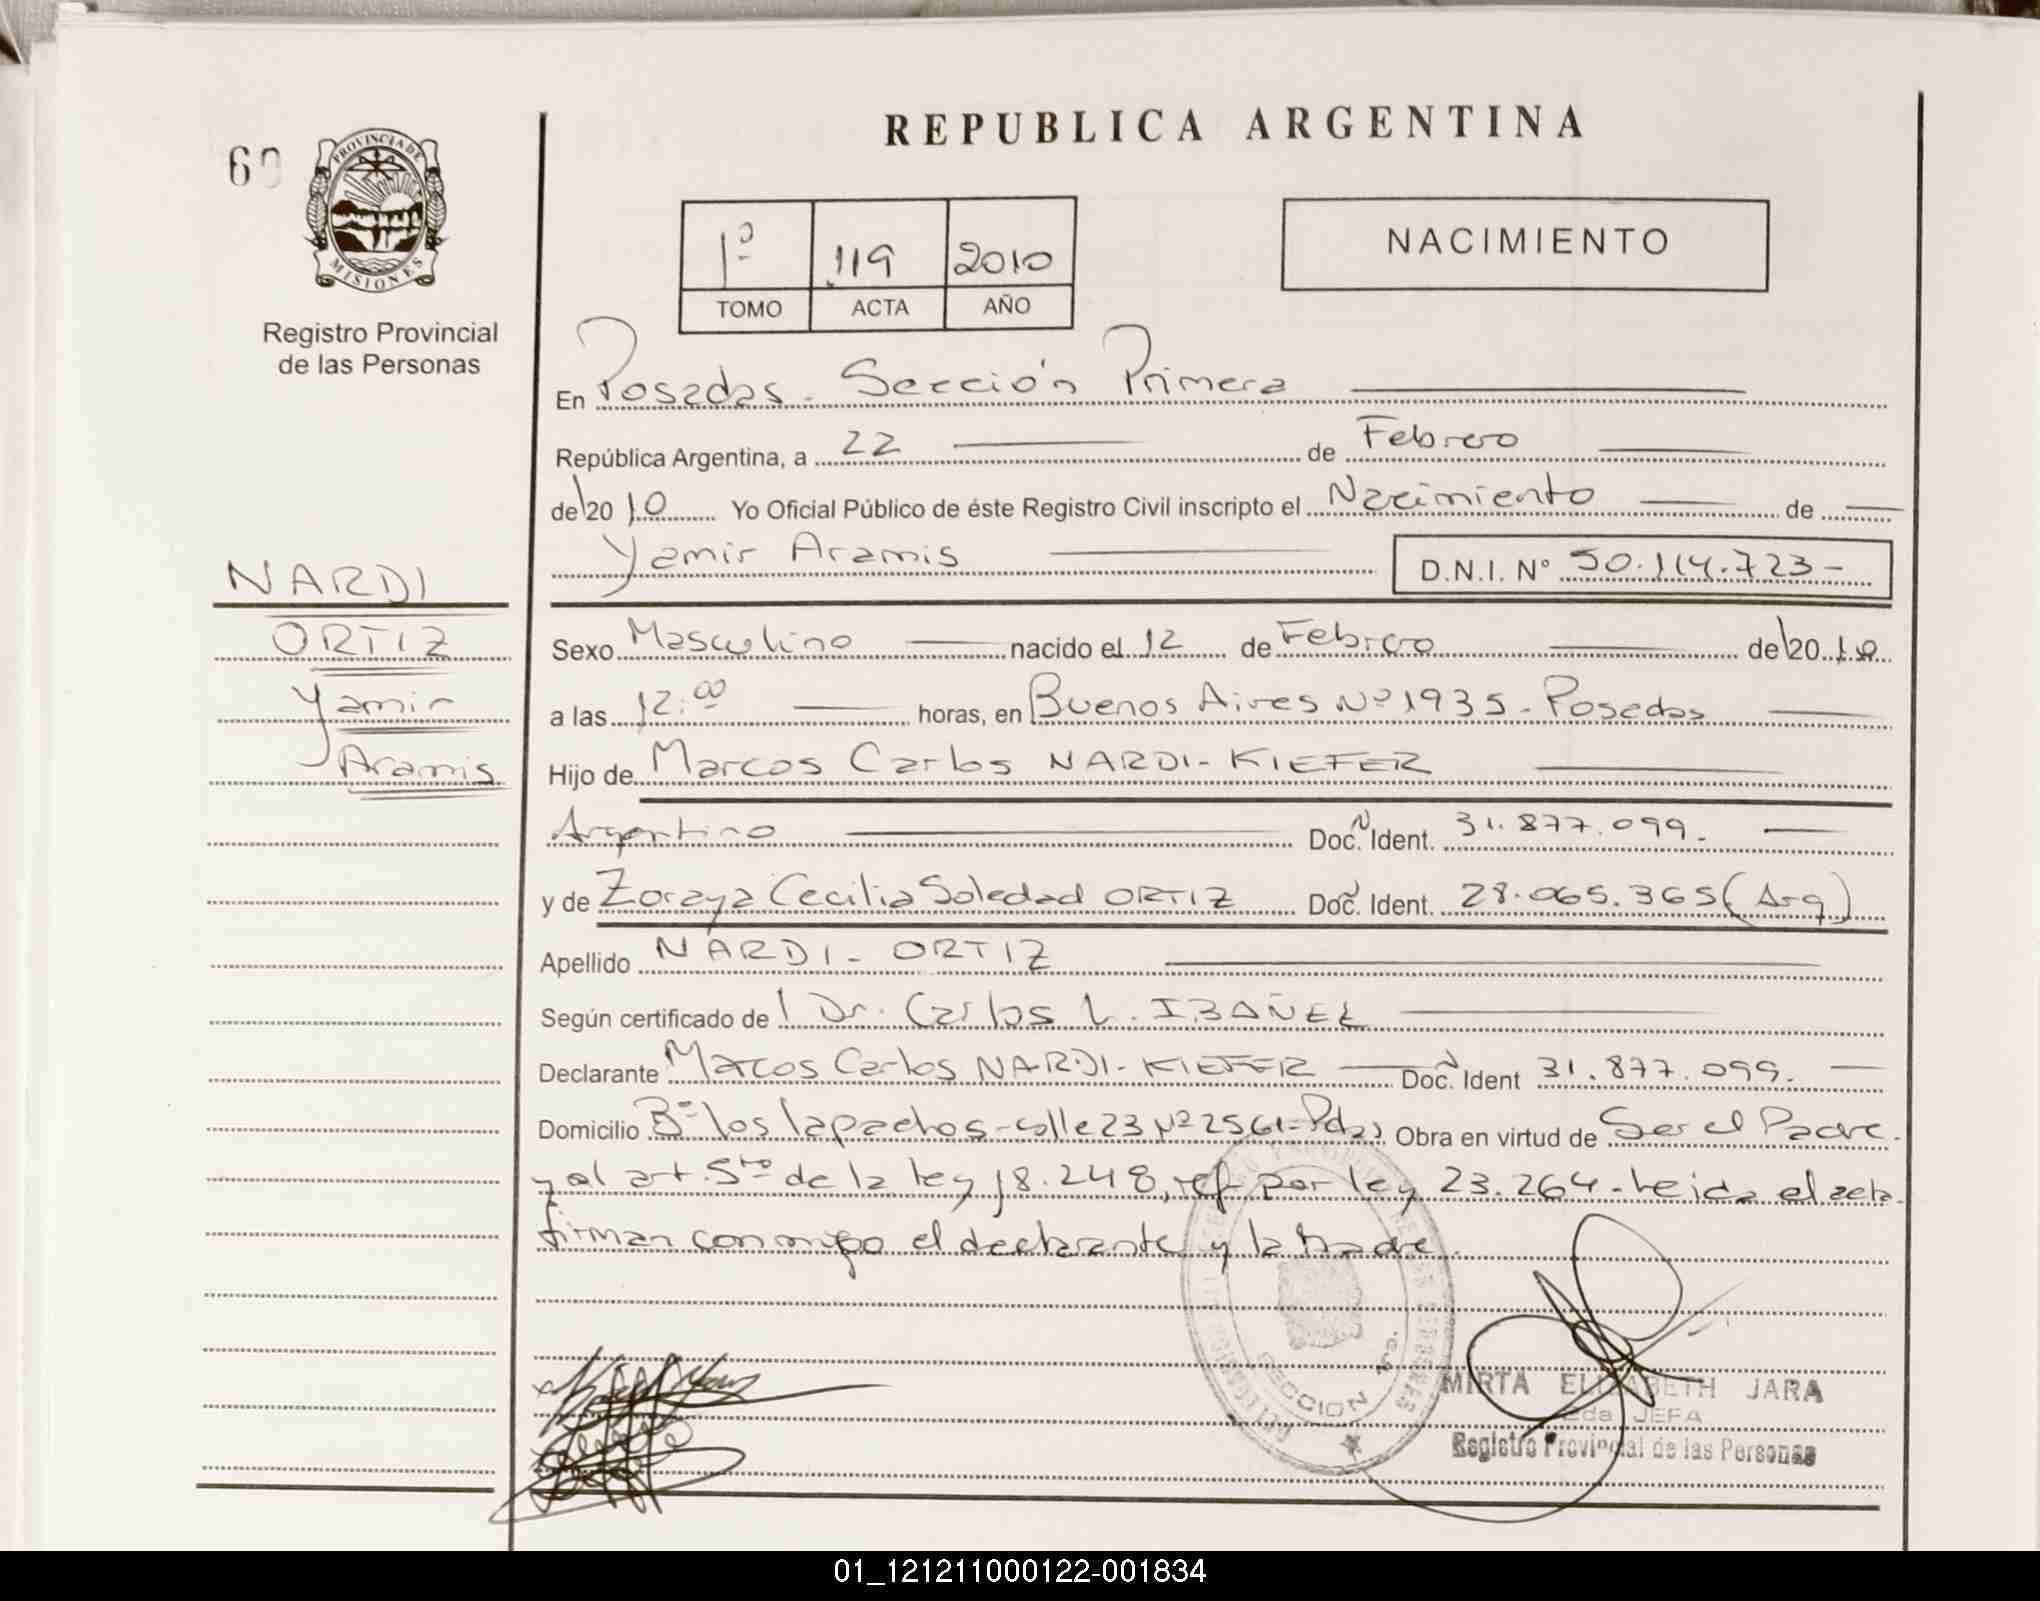 REPUBLICA ARGENTINA
60
PROVINCIA DE
MISIONES
Registro Provincial
de las Personas
1º 119 2010
TOMO ACTA AÑO
NACIMIENTO
En Posadas - Sección Primera
República Argentina, a 22 de Febrero
de 2010 Yo Oficial Público de éste Registro Civil inscripto el Nacimiento de
Yamir Aramis D.N.I. Nº 50.114.723-
NARDI
ORTIZ
Yamir
Aramis
Sexo Masculino nacido el 12 de Febrero de 2010
a las 12:00 horas, en Buenos Aires Nº 1935 - Posadas
Hijo de Marcos Carlos NARDI - KIEFER
Argentino Doc. Ident. 31.877.099.
y de Zoraya Cecilia Soledad ORTIZ Doc. Ident. 28.065.365 (Arg)
Apellido NARDI - ORTIZ
Según certificado de Dr. Carlos L. IBAÑEZ
Declarante Marcos Carlos NARDI - KIEFER Doc. Ident 31.877.099.
Domicilio Bº los lapachos - calle 23 Nº 2561 - Pdas Obra en virtud de Ser el Padre
y al art. 5to de la ley 18.248, ref por ley 23.264 - Leida el acta
firman conmigo el declarante y la Madre.
SECCION 1ra.
MIRTA ELIZABETH JARA
2da JEFA
Registro Provincial de las Personas
01_121211000122-001834